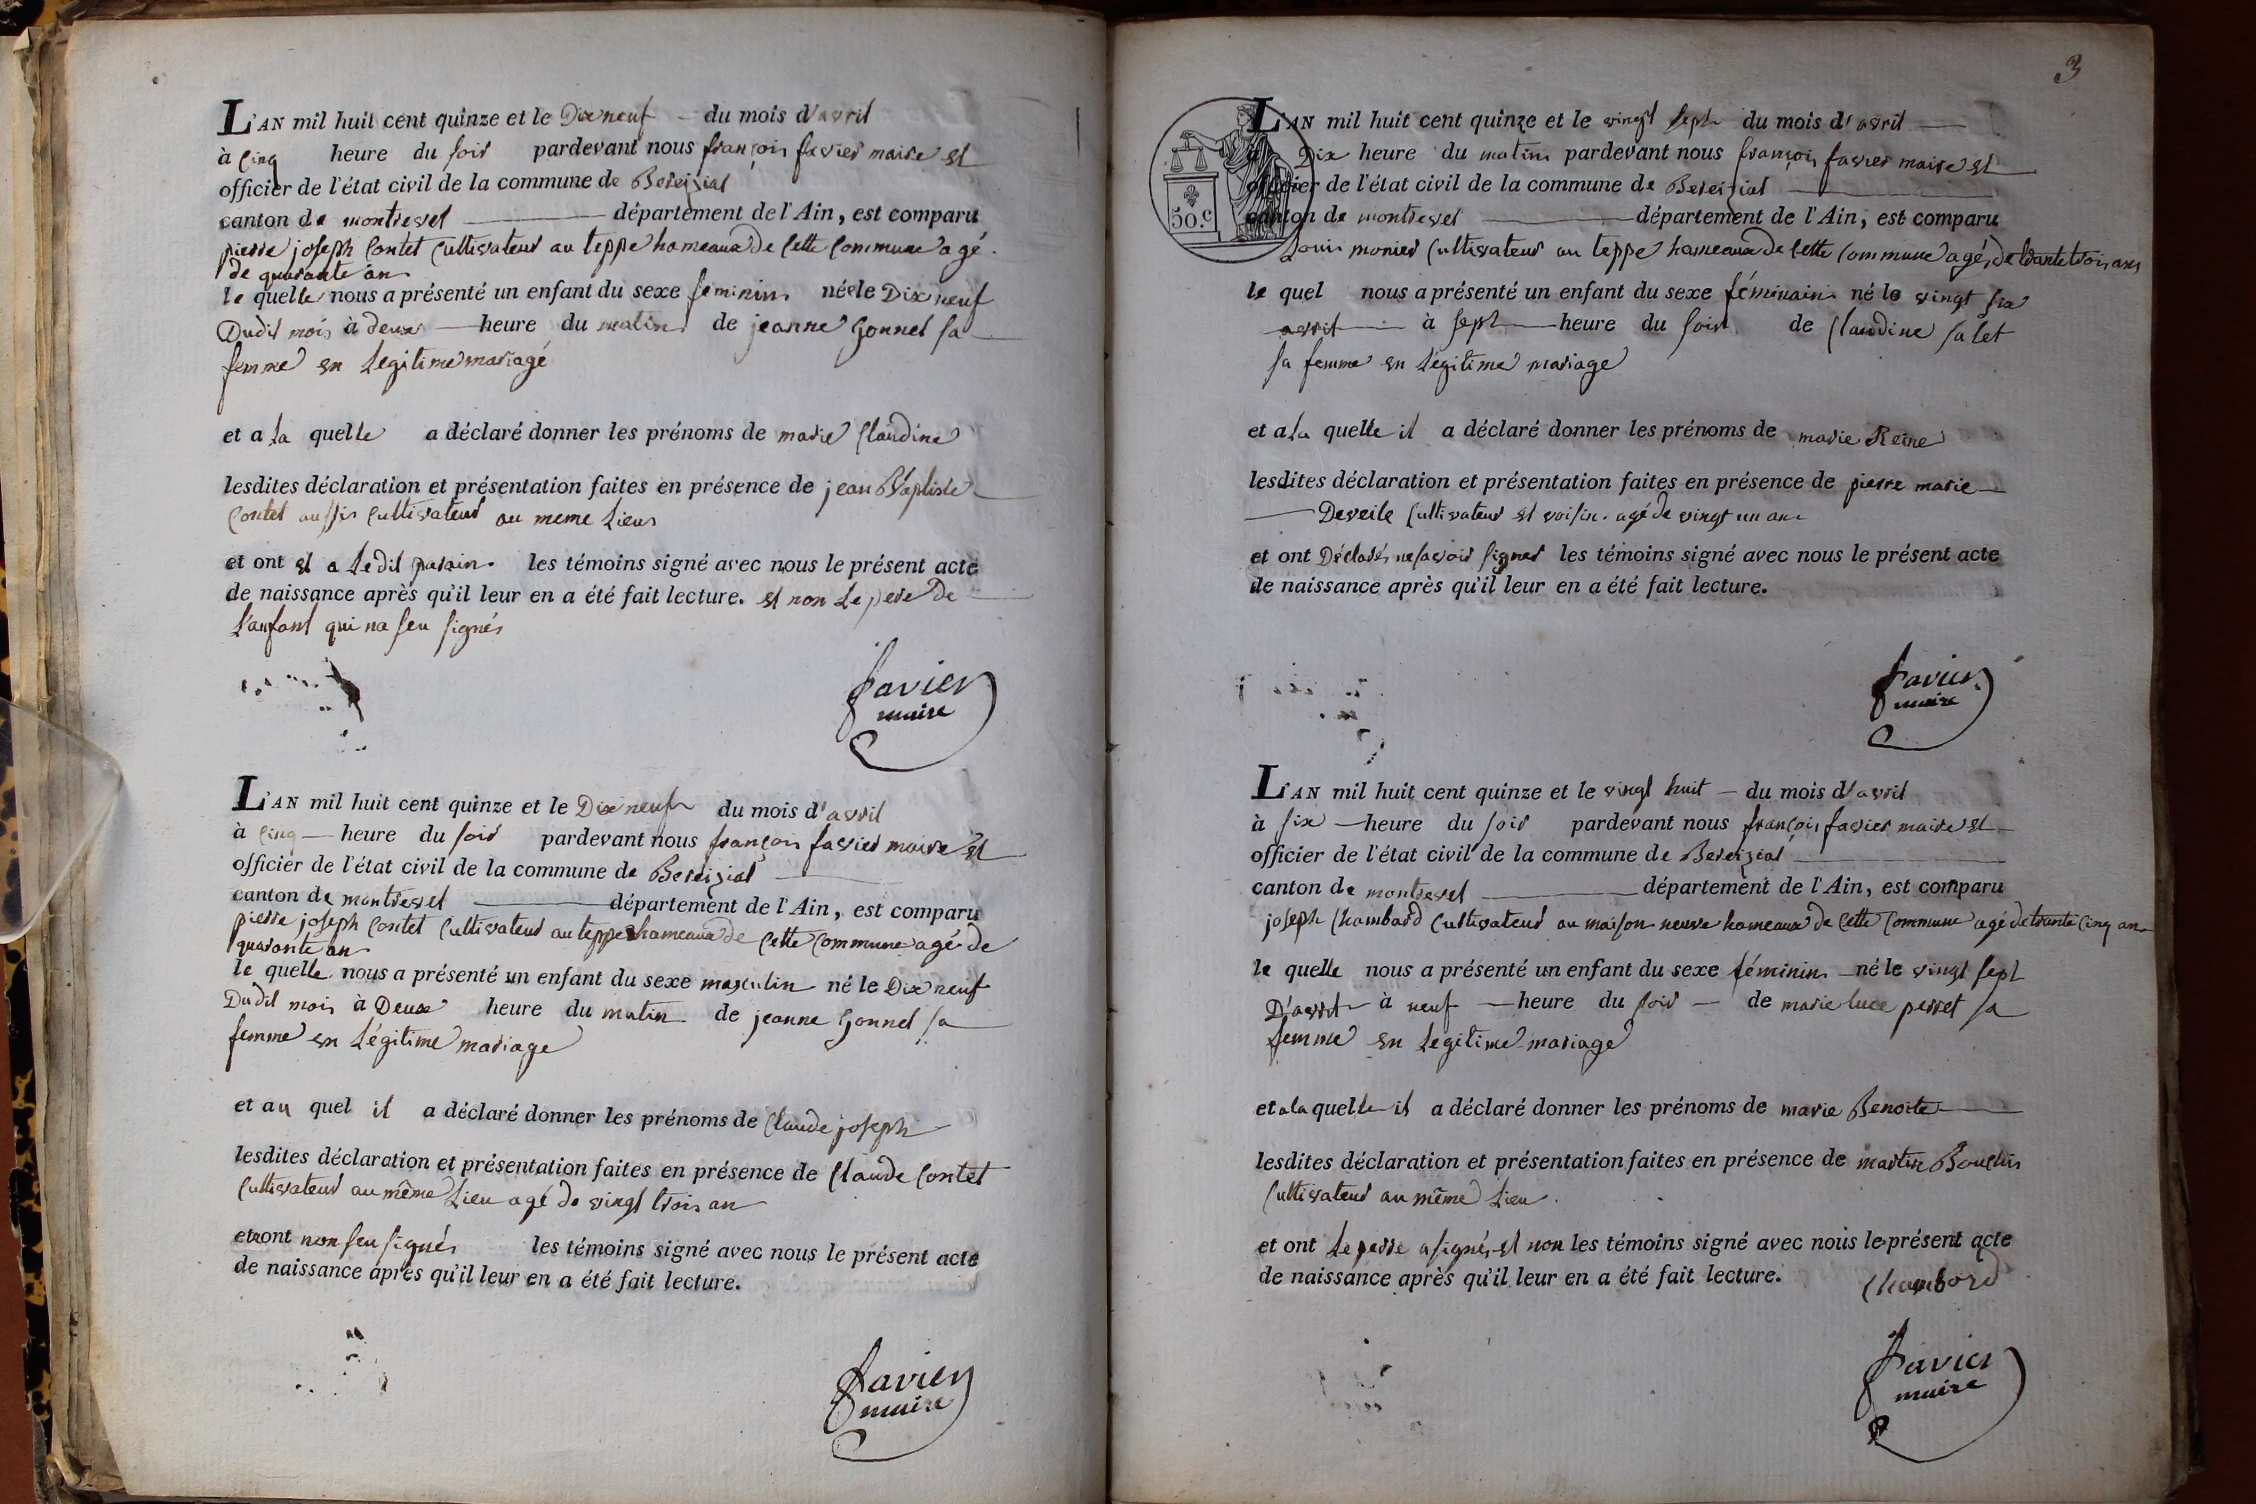 L'AN mil huit cent quinze et le Dix neuf du mois d'avril
à cinq heure du soir pardevant nous françois favier maire et
officier de l'état civil de la commune de Bereiziat
canton de montrevel département de l'Ain, est comparu
pierre joseph Contet Cultivateur au teppe hameaux de cette Commune agé
de quarante an
le quelle nous a présenté un enfant du sexe feminin née le Dix neuf
Dudit mois à deux heure du matin de jeanne Gonnet sa
femme en Legitime mariagé
et a la quelle a déclaré donner les prénoms de marie Claudine
lesdites déclaration et présentation faites en présence de jean Baptiste
Contet aussis Cultivateur au meme Lieus
et ont et a Ledit parain les témoins signé avec nous le présent acte
de naissance après qu'il leur en a été fait lecture. et non Le pere de
L'anfant qui na seu signés
favier
maire
L'AN mil huit cent quinze et le Dix neuf du mois d'avril
à cinq heure du soir pardevant nous françois favier maire et
officier de l'état civil de la commune de Bereiziat
canton de montrevel département de l'Ain, est comparu
pierre joseph Contet Cultivateur au teppe hameaux de cette Commune agé de
quarante an
le quelle nous a présenté un enfant du sexe masculin né le Dix neuf
Dudit mois à Deux heure du matin de jeanne Gonnet sa
femme en Légitime mariage
et au quel il a déclaré donner les prénoms de Claude joseph
lesdites déclaration et présentation faites en présence de Claude Contet
Cultivateur au même Lieu agé de vingt trois an
et ont non seu signés les témoins signé avec nous le présent acte
de naissance après qu'il leur en a été fait lecture.
favier
maire
3
50.c
L'AN mil huit cent quinze et le vingt sept du mois d'avril
à Dix heure du matin pardevant nous françois favier maire et
officier de l'état civil de la commune de Bereiziat
canton de montrevel département de l'Ain, est comparu
Louis monier Cultivateur au teppe hameaux de cette Commune agés de trante trois ans
le quel nous a présenté un enfant du sexe féminain né le vingt six
avril à sept heure du soir de Claudine salet
sa femme en Légitime mariage
et a la quelle il a déclaré donner les prénoms de marie Reine
lesdites déclaration et présentation faites en présence de pierre marie
Deveile Cultivateur et voisin agé de vingt un an
et ont Déclarés ne savoir signer les témoins signé avec nous le présent acte
de naissance après qu'il leur en a été fait lecture.
favier
maire
L'AN mil huit cent quinze et le vingt huit du mois d'avril
à six heure du soir pardevant nous françois favier maire et
officier de l'état civil de la commune de Bereiziat
canton de montrevel département de l'Ain, est comparu
joseph Chambard Cultivateur au maison neuve hameaux de cette Commune agé de trante cinq an
le quelle nous a présenté un enfant du sexe féminin né le vingt sept
D'avril à neuf heure du soir de marie luce perret sa
femme en Legitime mariage
et a la quelle il a déclaré donner les prénoms de marie Benoite
lesdites déclaration et présentation faites en présence de martin
Cultivateur au même Lieu
et ont Le perre a signés et non les témoins signé avec nous le présent acte
de naissance après qu'il leur en a été fait lecture.
Chambard
favier
maire